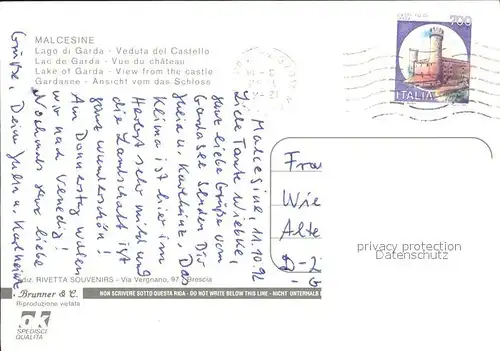 MALCESINE
Lago di Garda - Veduta del Castello
Lac de Garda - Vue du château
Lake of Garda - View from the castle
Gardasee - Ansicht vom das Schloss
700
ITALIA
Malcesine, 11.10.92
Liebe Tante Wiebke,
ganz liebe Grüße vom
Gardasee senden Dir
Julia u. Karlheinz. Das
Klima ist hier im
Herbst sehr mild und
die Landschaft ist
ganz wunderschön!
Am Donnerstag wollen
wir nach Venedig!
Nochmals ganz liebe
Grüße, Deine Julia u. Karlheinz
Fra
Wie
Alte
D-2
privacy protection
Datenschutz
diz. RIVETTA SOUVENIRS - Via Vergnano, 97 - Brescia
Brunner & C.
NON SCRIVERE SOTTO QUESTA RIGA - DO NOT WRITE BELOW THIS LINE - NICHT UNTERHALB
Riproduzione vietata
OK
SPEDISCI
QUALITÀ